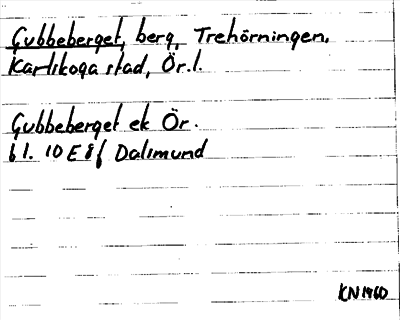 Gubbeberget, berg, Trehörningen,
Karlskoga stad, Ör.l.
Gubbeberget ek Ör.
bl. 10E 8f Dalimund
KN 1960